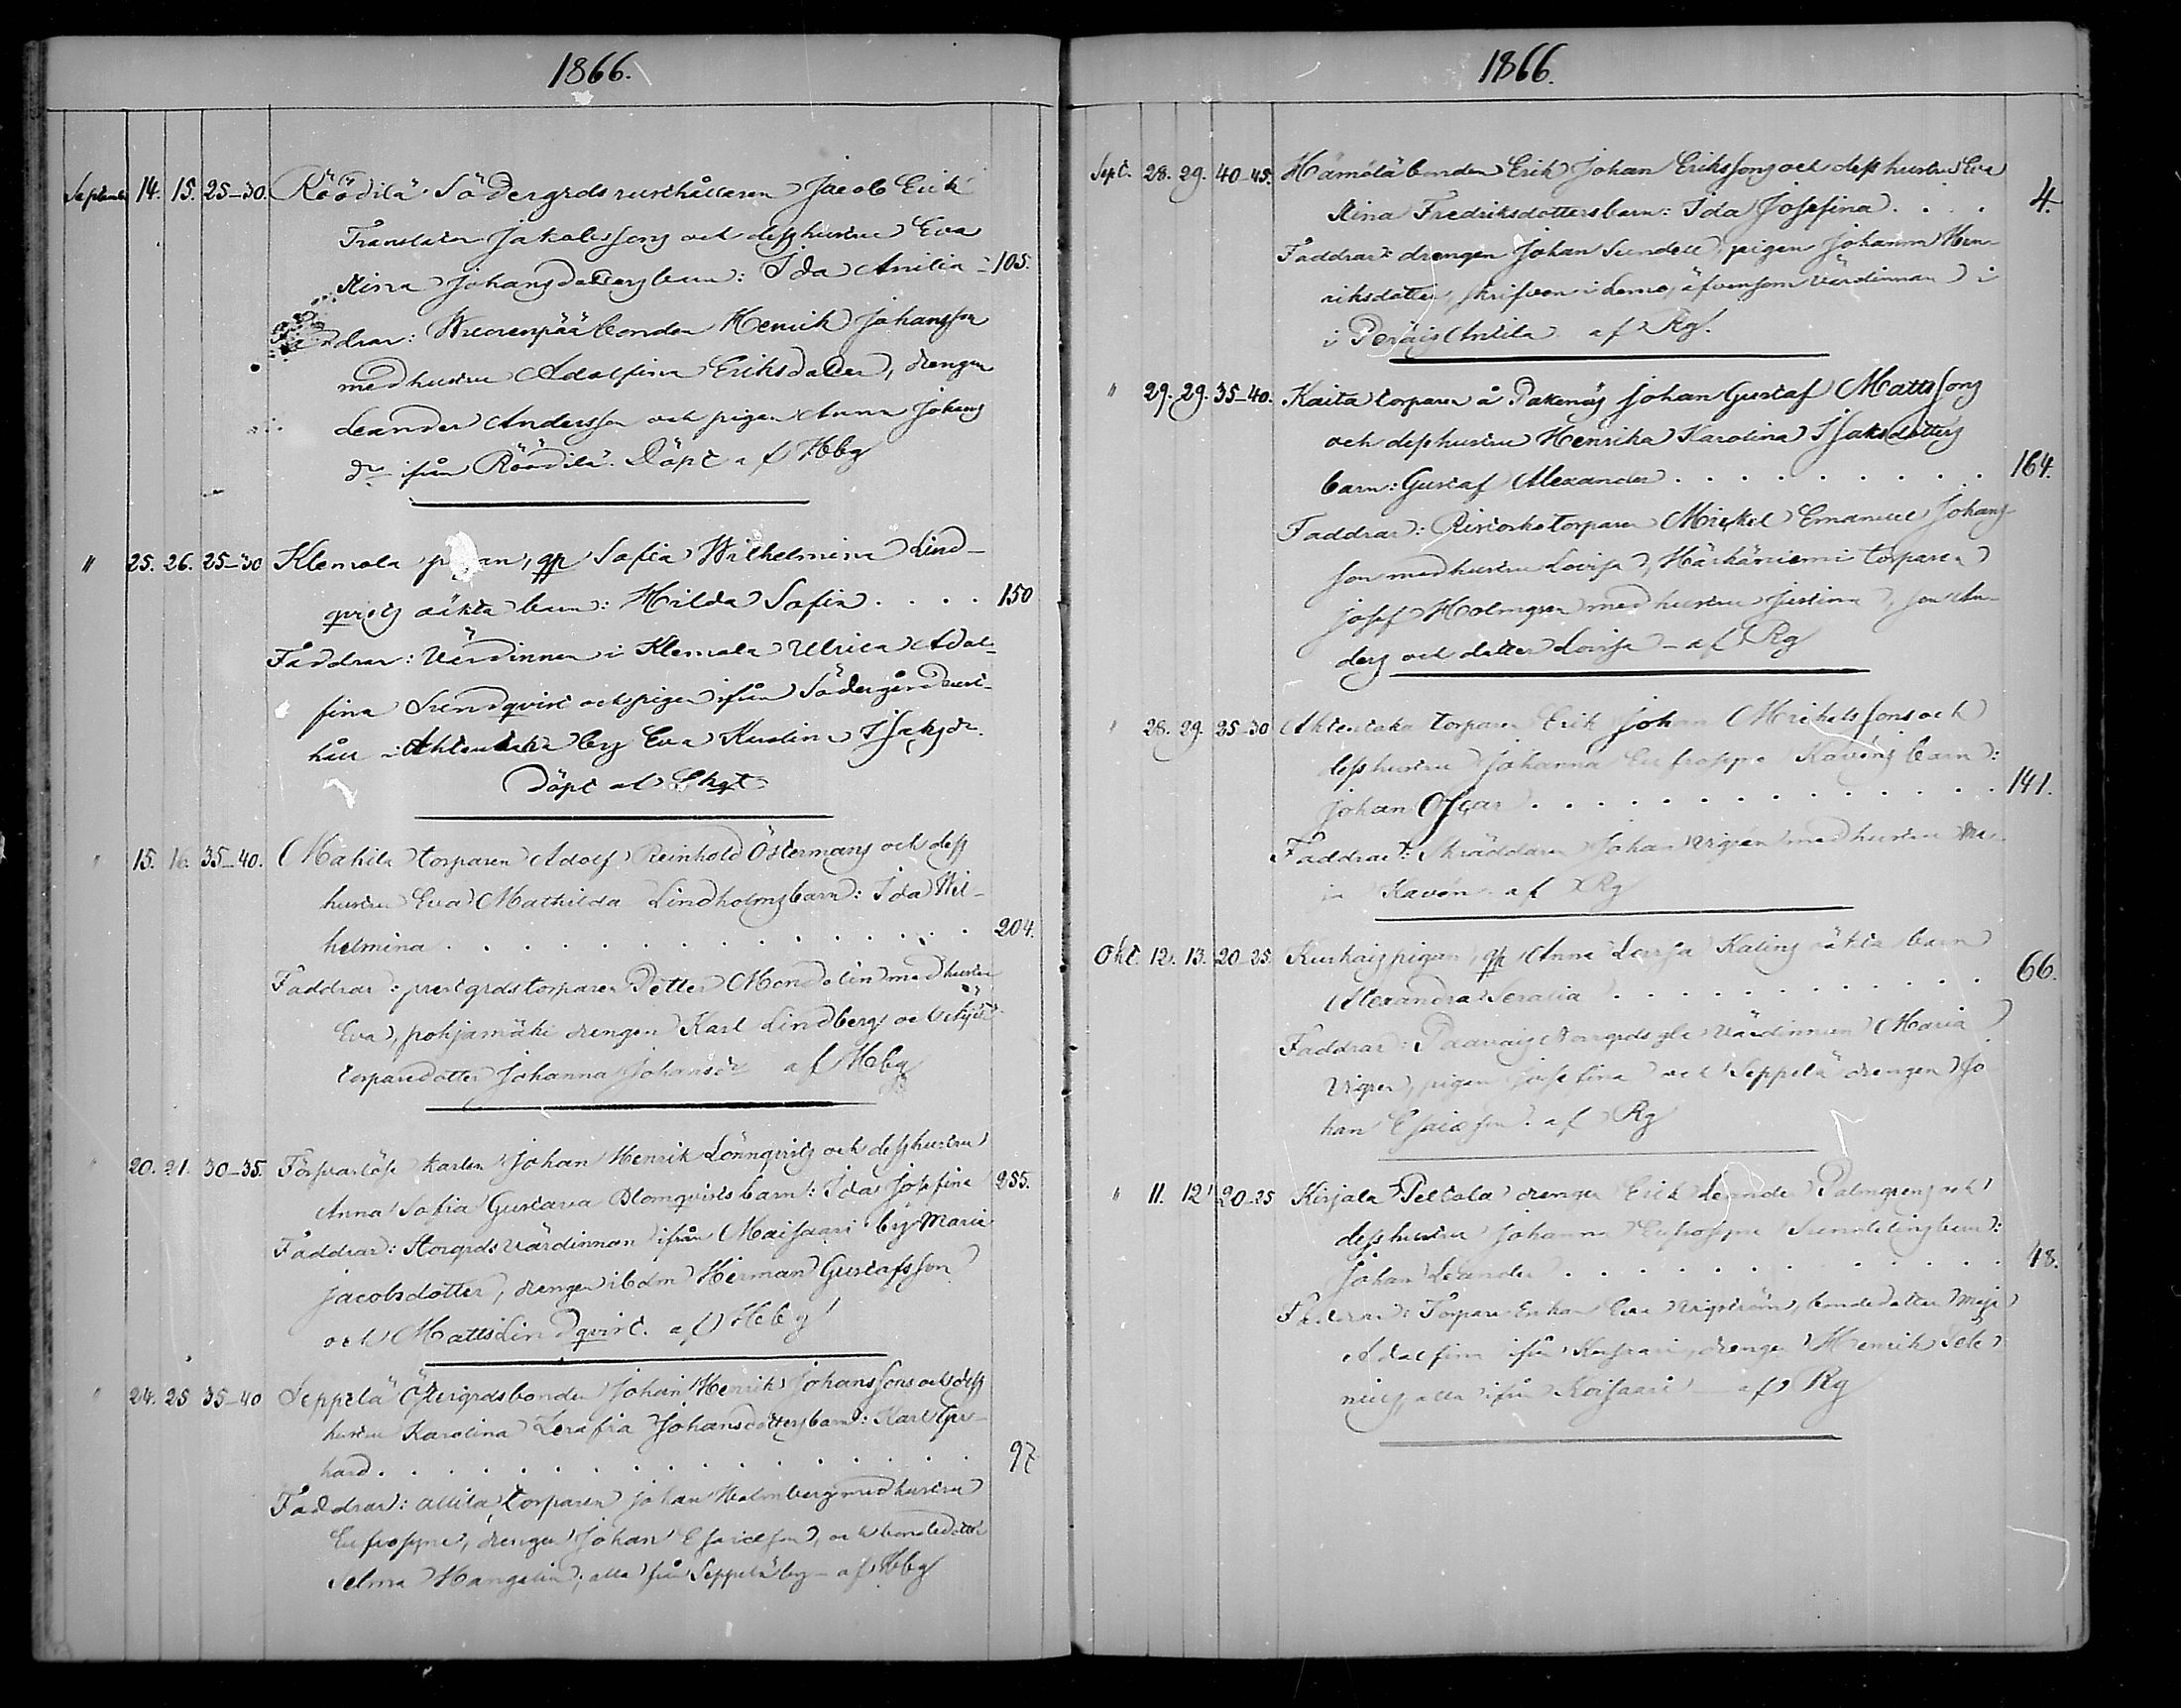 1866.
September 14. 15. 25-30. Röödilä Södergrds rusthållaren Jacob Erik
Translatin Jakobssons och dess hustru Eva
Stina Johansdotters barn: Ida Amilia - 105.
Faddrar: Wuorenpää bonden Henrik Johansson
med hustru Adolfina Eriksdotter, drengen
Leander Andersson och pigan Anna Johans
dr ifrån Röödilä. Döpt af Hbg
" 25. 26. 25-30 Klemola pigan, qp Sofia Wilhelmina Lind-
qvists oäkta barn: Hilda Sofia . . . . 150
Faddrar: Värdinnan i Klemola Ulrica Adol-
fina Lindqvist och pigan ifrån Södergård rust-
håll i Ahtentaka by Eva Kustina Isaksdr.
Döpt af Ekqt
" 15. 16. 35-40. Mahila torparen Adolf Reinhold Östermans och dess
hustru Eva Mathilda Lindholms barn: Ida Wil-
helmina . . . . . . . . . . . . . . 204.
Faddrar: prestgrds torparen Petter Mondolin med hustru
Eva, pohjamäki drengen Karl Lindberg och
torparedotter Johanna Johansdr af Hbg
" 20. 21. 30-35. Försvarlöse karlen Johan Henrik Lönnqvists och dess hustru
Anna Sofia Gustava Blomqvists barn: Ida Josefina 255.
Faddrar: Storgrds värdinnan ifrån Maisaari by Maria
Jacobsdotter, drengen ibdm Herman Gustafsson
och Matts Lindqvist. af Hbg
" 24. 25 35-40 Seppelä Östergrds bonden Johan Henrik Johanssons och dess
hustru Karolina Serafia Johansdotters barn: Karl Ger-
hard . . . . . . . . . . . . . . . . 97
Faddrar: Allila torparen Johan Holmberg med hustru
Eufrosyne, drengen Johan Esaiesson, och bondedottr
Selma Mangelin; alla från Seppelä by - af Hbg
1866.
Sept. 28. 29. 40-45. Hämölä bonden Erik Johan Erikssons och dess hustru Eva
Stina Fredriksdotters barn: Ida Josefina . . . 4.
Faddrar: drengen Johan Sundell, pigan Johanna Hen-
riksdotter, skrifven i Lemo, äfvensom värdinnan i
i Peräis Antila af Rg.
" 29. 29. 35-40. Kaita torparen å Pakenäs Johan Gustaf Mattssons
och dess hustru Henrika Karolina Isaksdotters
barn: Gustaf Alexander . . . . . . . . . 164.
Faddrar: torparen Mickel Emanuel Johans-
son med hustru Lovisa, Härkäniemi torparen
Josef Holmgren med hustru Justina, son An-
ders och dotter Lovisa - af Rg
" 28. 29. 25-30 Ahtentaka torparen Erik Johan Mickelssons och
dess hustru Johanna Eufrosyne Kavéns barn:
Johan Oscar . . . . . . . . . . . . . . 141.
Faddrar: Skräddaren Johan Vigrén med hustru Ma-
ia Kavén. af Rg
Okt. 12. 13. 20-25. Kuskais pigan, qp Anna Lovisa Kalins oäkta barn
Alexandra Serafia . . . . . . . . . . . 66.
Faddrar: Paavais Norrgrds gla värdinnan Maria
Vigren, pigan Josefina och Seppelä drengen Jo
han Esaiasson. af Rg
" 11. 12 20-25 Kirjala Peltola drengen Erik Leander Palmgrens och
dess hustru Johanna Eufrosyne barn:
Johan Leander . . . . . . . . . . . . . . 48.
Faddrar: Torpare Enkan Eva Vigström, bondedotter Maja
Adolfina ifrån Koisaari, drengen Henrik Sele
nius, alla ifrån Koisaari - af Rg